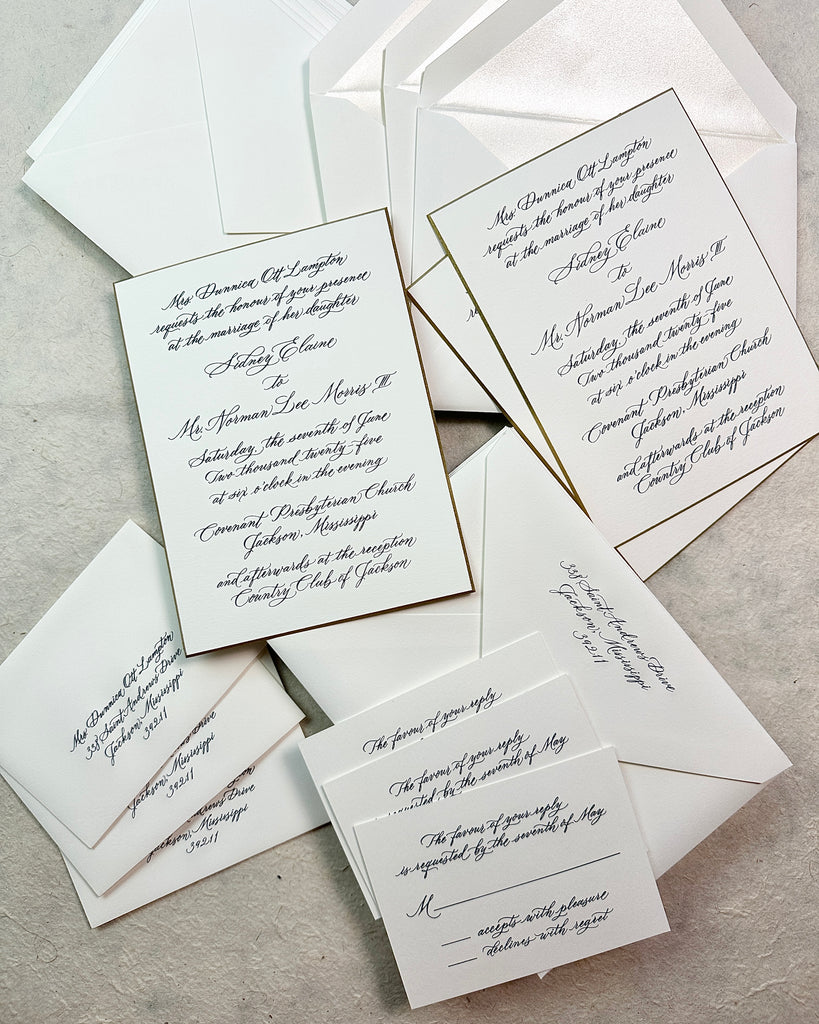 Mrs. Dunnica Ott Lampton
requests the honour of your presence
at the marriage of her daughter
Sidney Elaine
to
Mr. Norman Lee Morris III
Saturday, the seventh of June
Two thousand twenty-five
at six o'clock in the evening
Covenant Presbyterian Church
Jackson, Mississippi
and afterwards at the reception
Country Club of Jackson
Mrs. Dunnica Ott Lampton
requests the honour of your presence
at the marriage of her daughter
Sidney Elaine
to
Mr. Norman Lee Morris III
Saturday, the seventh of June
Two thousand twenty-five
at six o'clock in the evening
Covenant Presbyterian Church
Jackson, Mississippi
and afterwards at the reception
Country Club of Jackson
338 Saint Andrews Drive
Jackson, Mississippi
39211
Mrs. Dunnica Ott Lampton
338 Saint Andrews Drive
Jackson, Mississippi
39211
Drive
Jackson, Mississippi
39211
Drive
Jackson, Mississippi
39211
The favour of your reply
The favour of your reply
requested by the seventh of May
The favour of your reply
is requested by the seventh of May
M
accepts with pleasure
declines with regret